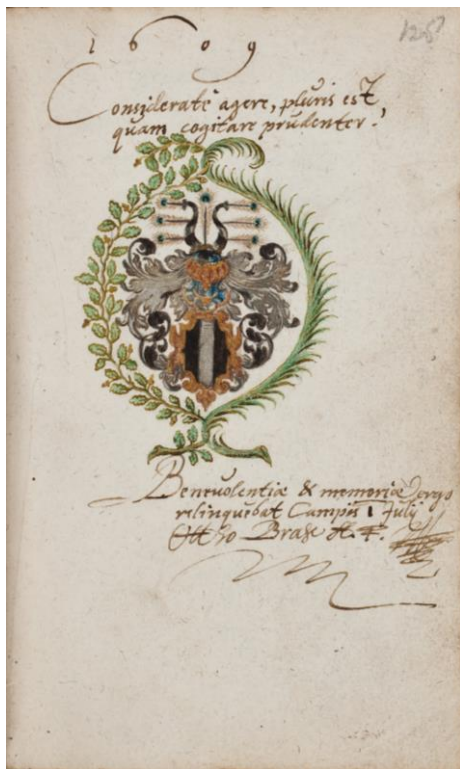 125
1609
Considerate agere, pluris est,
quam cogitare prudenter.
Benevolentiæ & memoriæ ergo
relinquebat Campis 1 Julij
Ottho